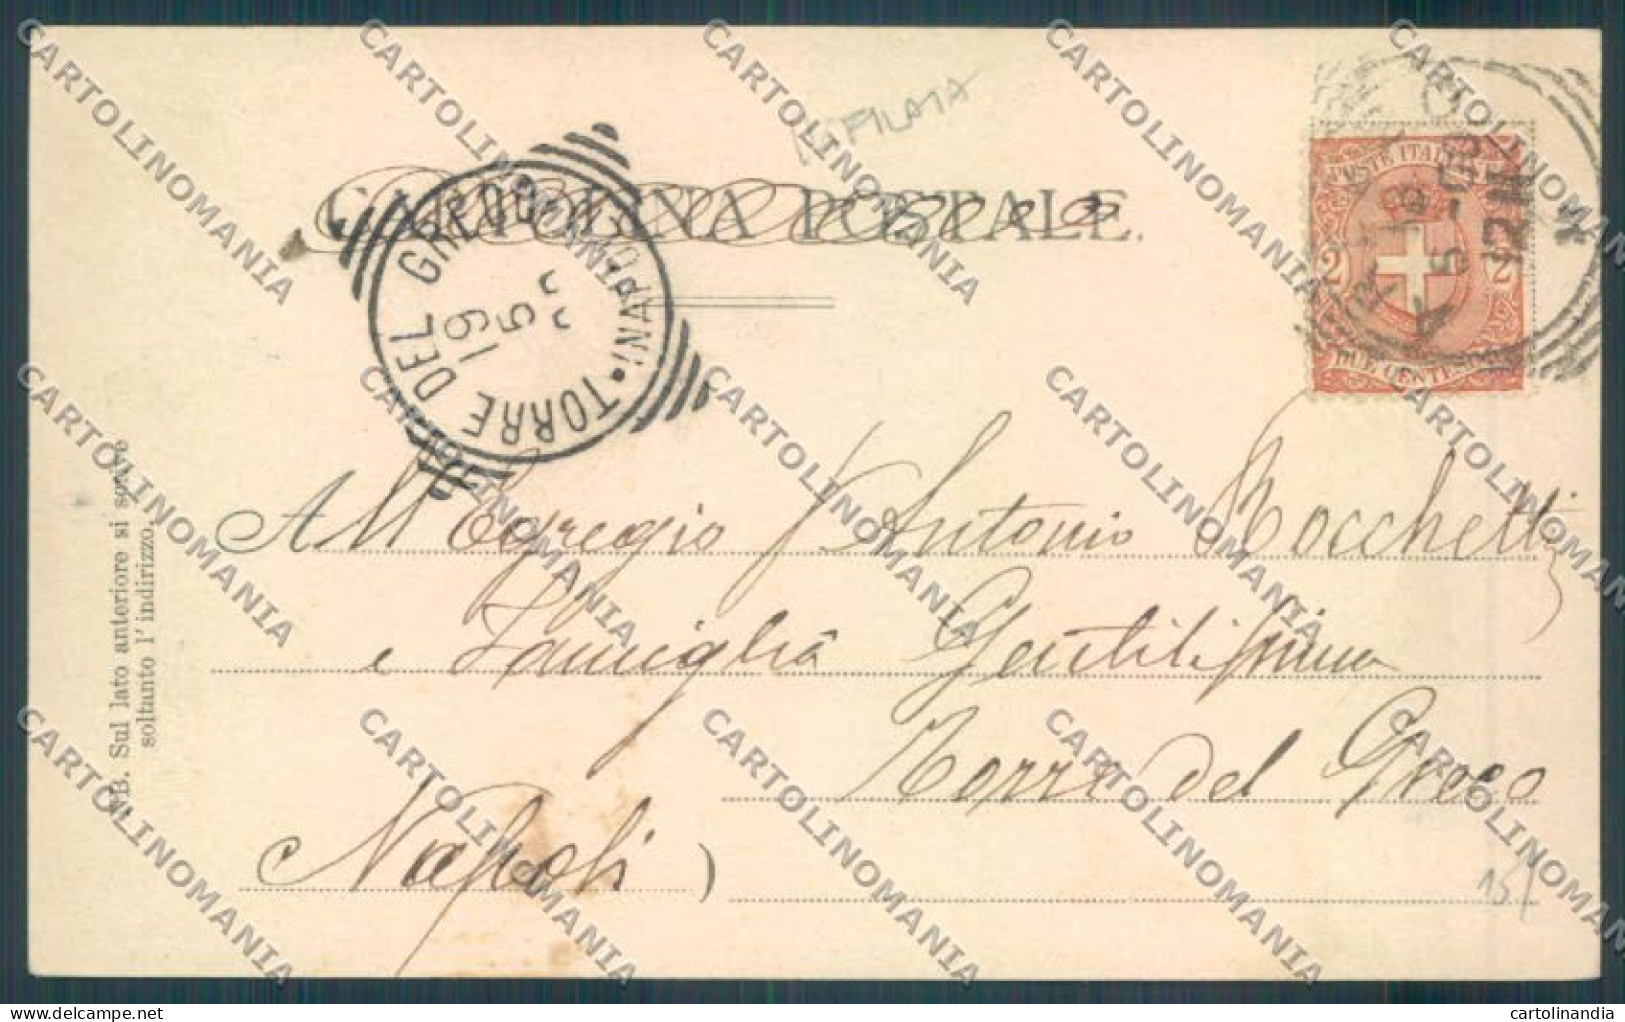 FILATA
CARTOLINA POSTALE.
TORRE DEL GRECO (NAPOLI)
19
5
POSTE ITALIANE
2 2
DUE CENTESIMI
5-03
12M
All'Egregio Sr Antonio Nocchetti
e Famiglia Gentilissima
Torre del Greco
(Napoli)
NB. Sul lato anteriore si scrive
soltanto l'indirizzo.
15
CARTOLINOMANIA
cartolinandia